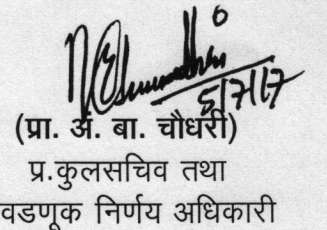 5/7/17
(प्रा. अं. बा. चौधरी)
प्र.कुलसचिव तथा
वडणूक निर्णय अधिकारी